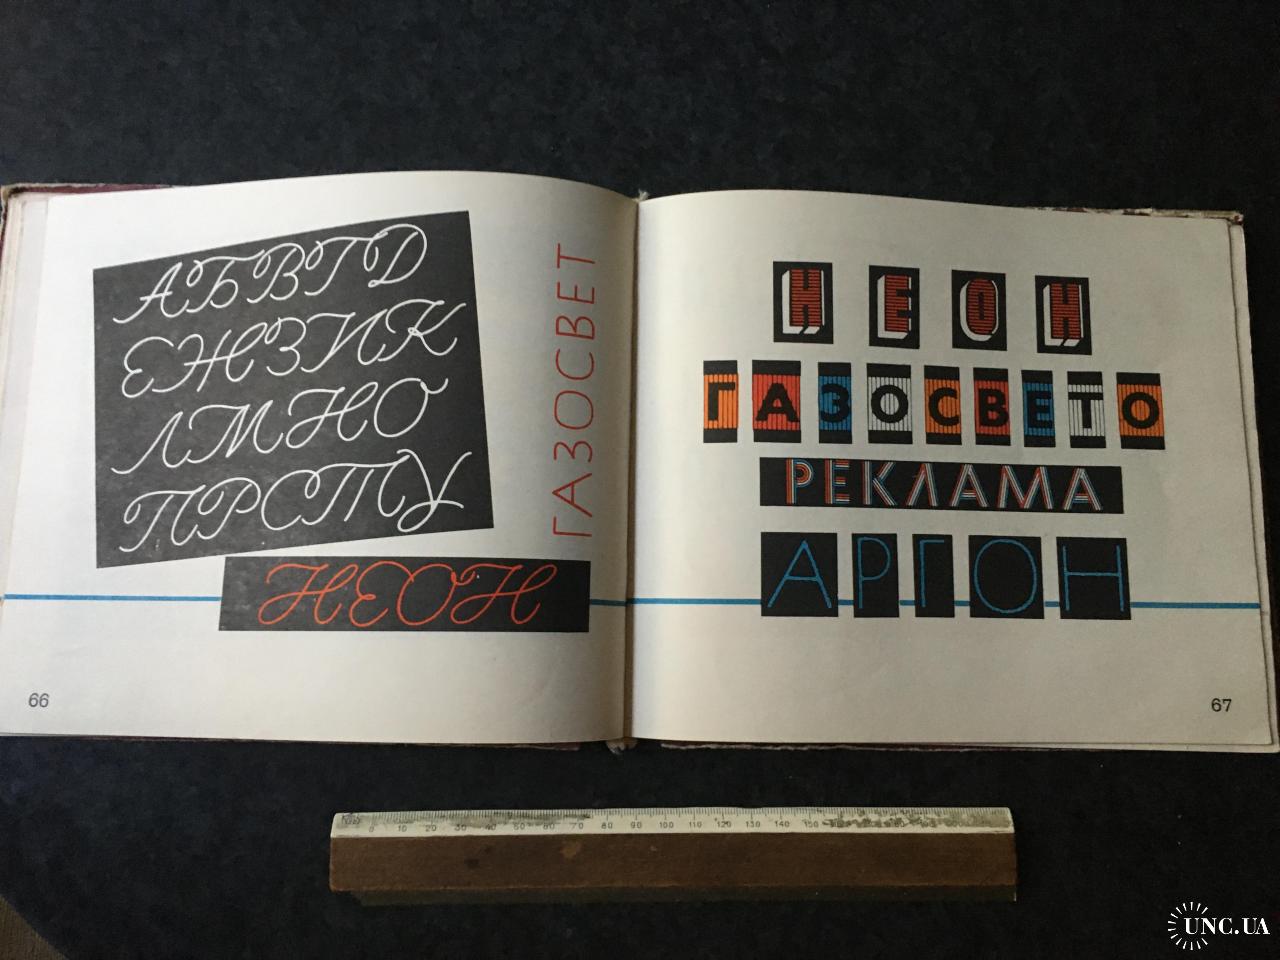 АБВГД
ЕЖЗИК
ЛМНО
ПРСТУ
ГАЗОСВЕТ
НЕОН
66
НЕОН
ГАЗОСВЕТО
РЕКЛАМА
АРГОН
67
0 10 20 30 40 50 60 70 80 90 100 110 120 130 140 150
UNC.UA